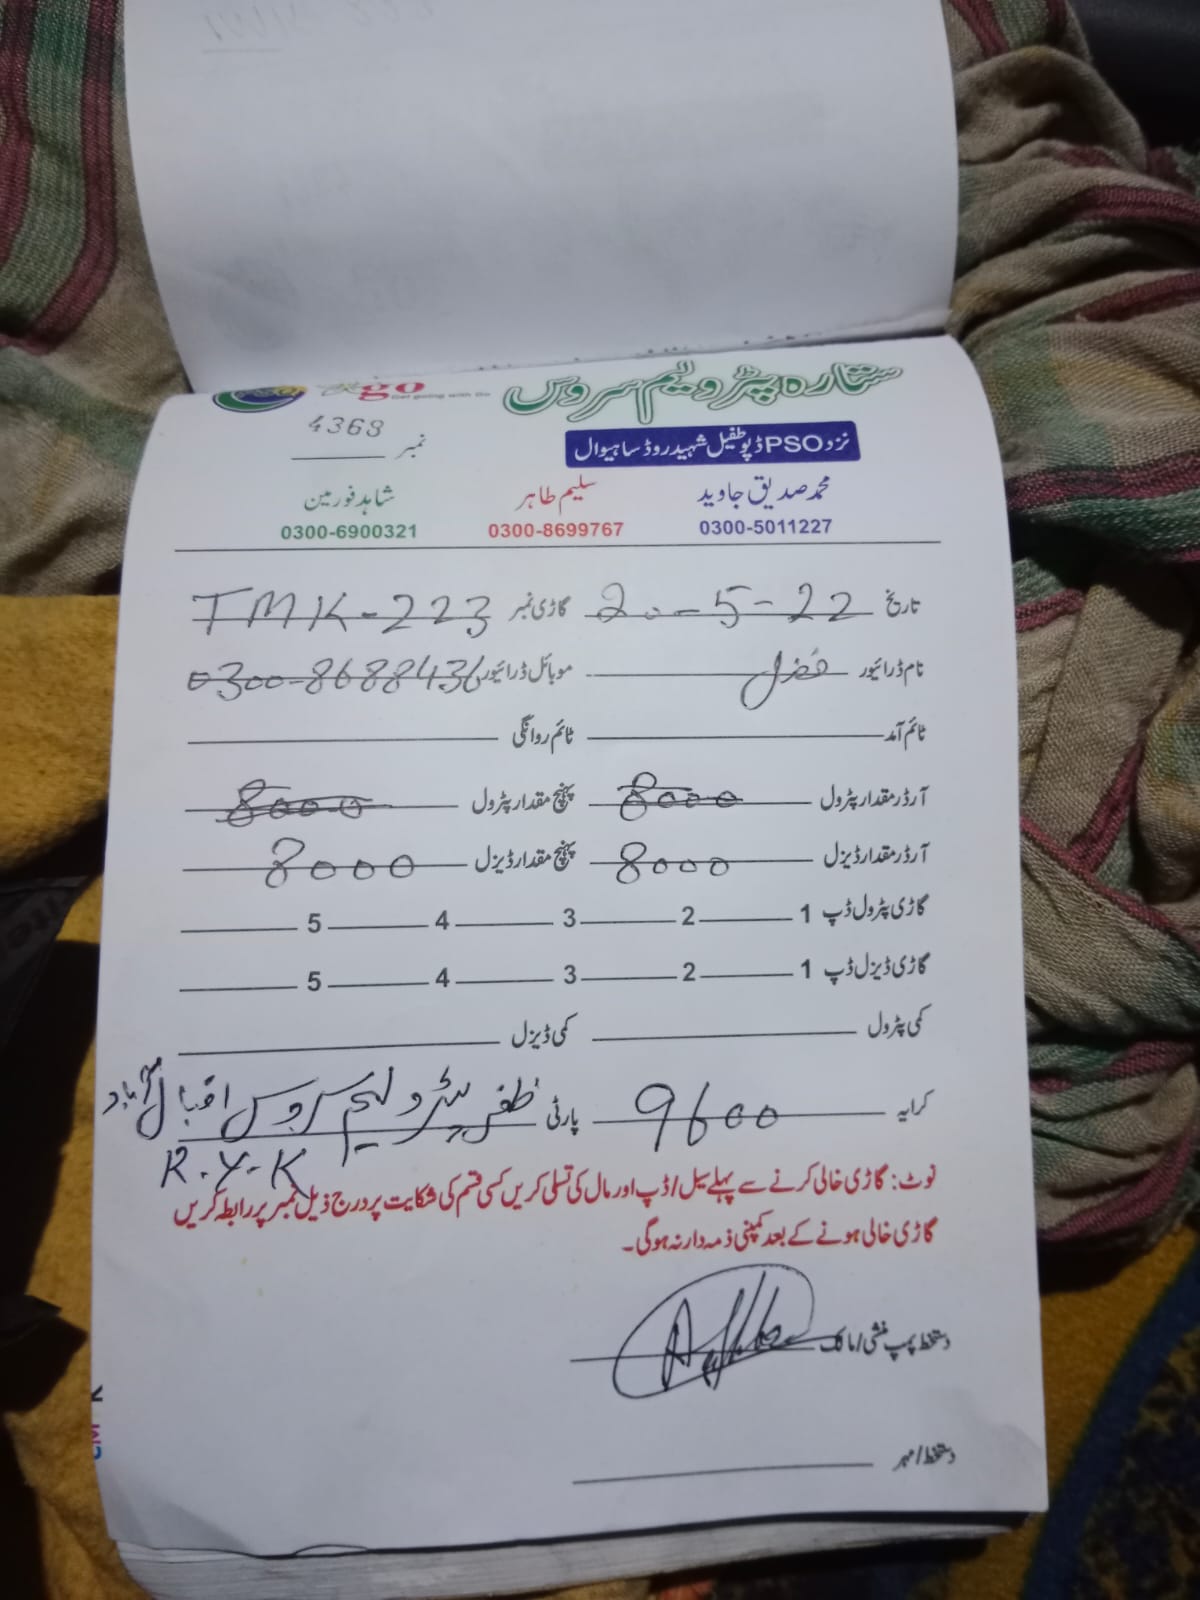 ستارہ پٹرولیم سروس
go
Get going with Go
نزد PSO ڈپو طفیل شہید روڈ ساہیوال
نمبر 4368
محمد صدیق جاوید سلیم طاہر شاہد فورمین
0300-5011227 0300-8699767 0300-6900321
تاریخ 20-5-22 گاڑی نمبر TMK-223
نام ڈرائیور فضل موبائل ڈرائیور 0300-8688436
ٹائم آمد ٹائم روانگی
آرڈر مقدار پٹرول 8000 پہنچ مقدار پٹرول 8000
آرڈر مقدار ڈیزل 8000 پہنچ مقدار ڈیزل 8000
گاڑی پٹرول ڈپ 1 2 3 4 5
گاڑی ڈیزل ڈپ 1 2 3 4 5
کمی پٹرول کمی ڈیزل
کرایہ 9600 پارٹی ظفر پٹرولیم سروس اقبال آباد
R.Y.K
نوٹ: گاڑی خالی کرنے سے پہلے سیل/ڈپ اور مال کی تسلی کریں کسی قسم کی شکایت پر درج ذیل نمبر پر رابطہ کریں
گاڑی خالی ہونے کے بعد کمپنی ذمہ دار نہ ہوگی۔
دستخط پمپ منشی/مالک
دستخط/مہر